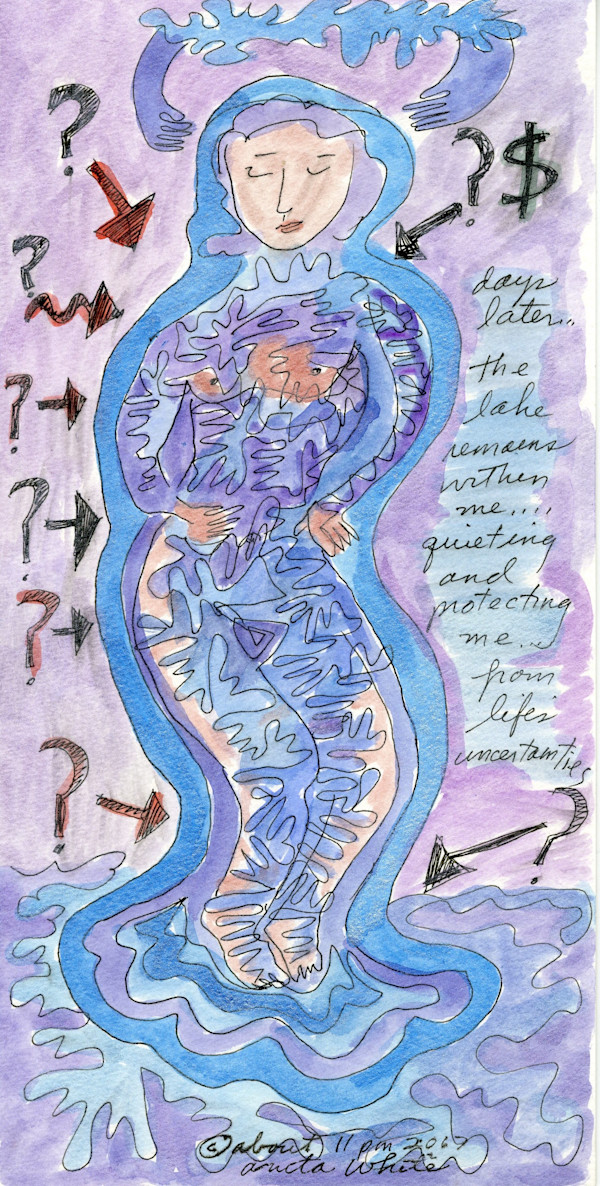 ?
? $
?
?
?
?
?
?
days
later...
the
lake
remains
within
me....
quieting
and
protecting
me...
from
life's
uncertainties
© about 11 pm
White